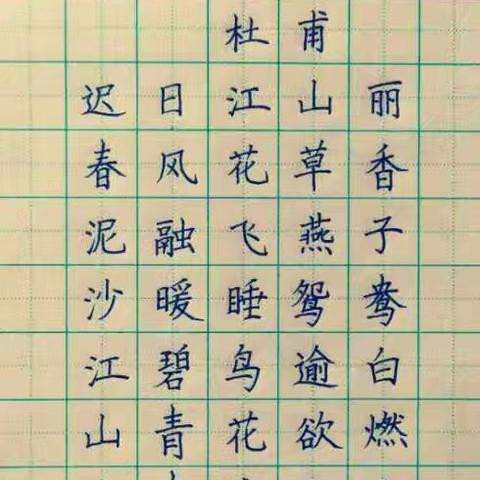 杜甫
迟日江山丽
春风花草香
泥融飞燕子
沙暖睡鸳鸯
江碧鸟逾白
山青花欲燃